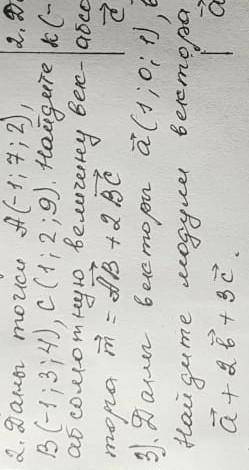 2. Даны точки А(-1; 7; 2),
В(-1; 3; 4), С(1; 2; 9). Найдите
абсолютную величину век-
тора m = АВ + 2ВС
3). Даны векторы a(1; 0; 1),
Найдите модули вектора
a + 2b + 3c.
2. Д
К(-
абсо
c
a